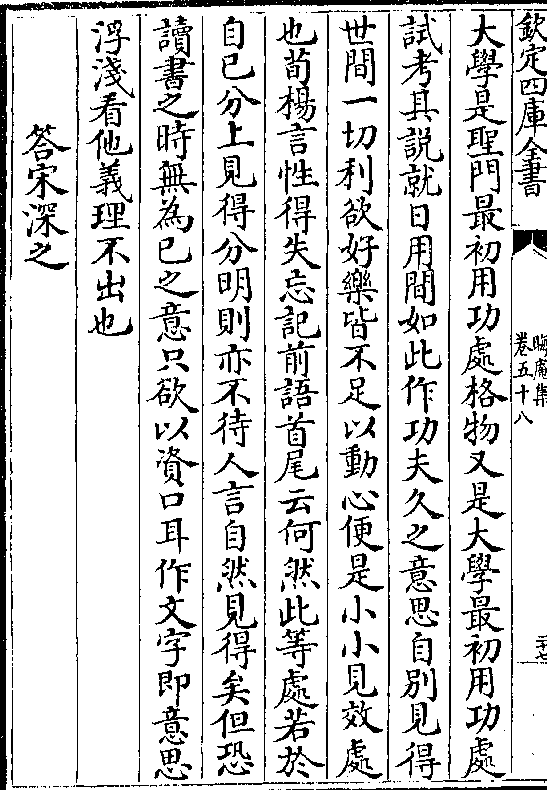 欽定四庫全書
晦庵集
卷五十八
二十七
大學是聖門最初用功處格物又是大學最初用功處
試考其說就日用間如此作功夫久之意思自別見得
世間一切利欲好樂皆不足以動心便是小小見效處
也荀楊言性得失忘記前語首尾云何然此等處若於
自己分上見得分明則亦不待人言自然見得矣但恐
讀書之時無為己之意只欲以資口耳作文字即意思
浮淺看他義理不出也
答宋深之